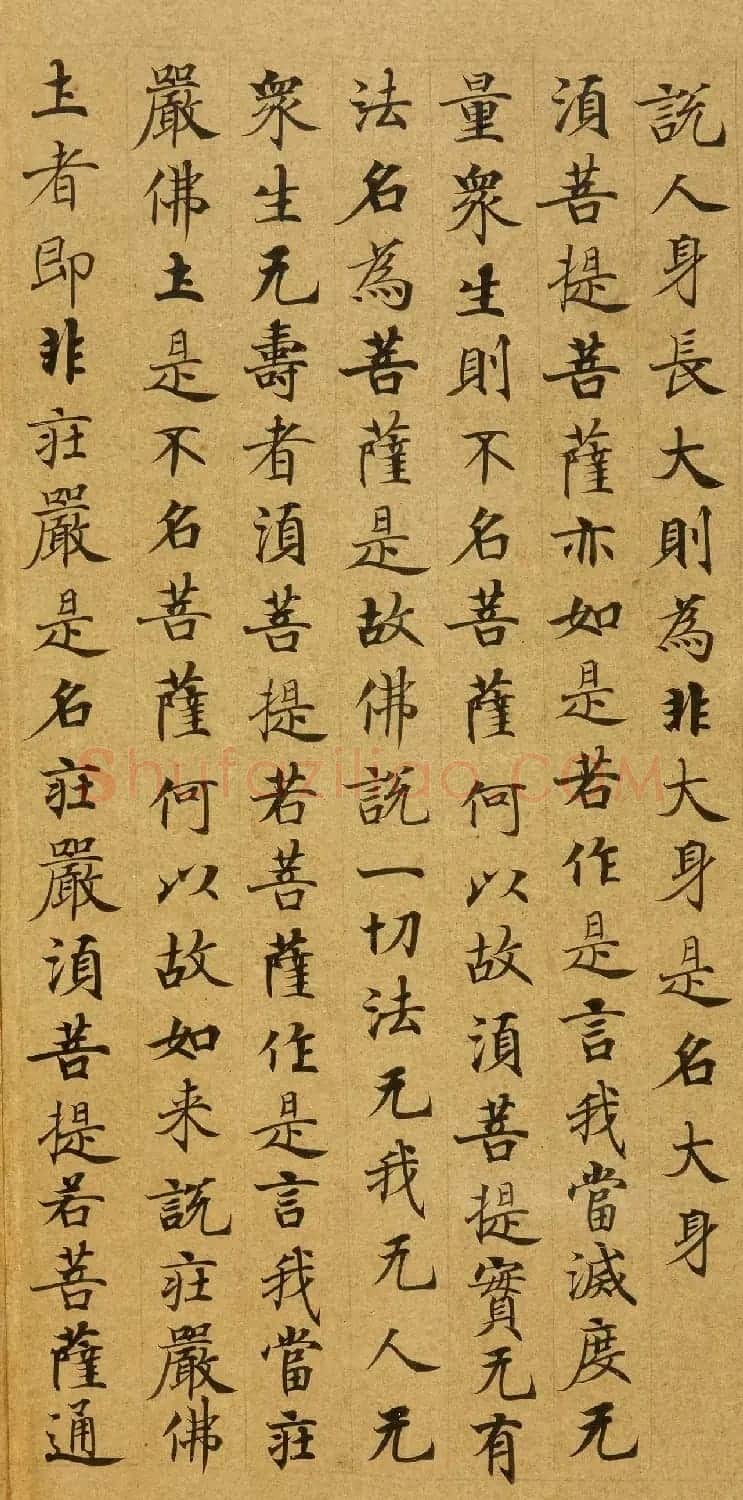 說人身長大則為非大身是名大身
湏菩提菩薩亦如是若作是言我當滅度无
量衆生則不名菩薩何以故湏菩提實无有
法名為菩薩是故佛說一切法无我无人无
衆生无壽者湏菩提若菩薩作是言我當庄
嚴佛土是不名菩薩何以故如来說庄嚴佛
土者即非庄嚴是名庄嚴湏菩提若菩薩通
Shufaziliao.COM